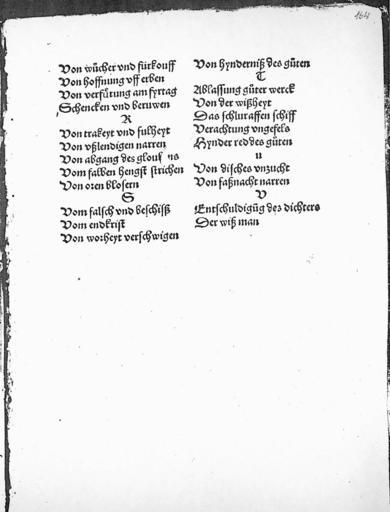 164
Von wůcher vnd fürkouff
Von hoffnung vff erben
Von verfůrung am fyrtag
Schencken vnd beruwen
R
Von trakeyt vnd fulheyt
Von vßlendigen narren
Von abgang des glouf ns
Vom falben hengst strichen
Von oren blosern
S
Vom falsch vnd beschiß
Vom endkrist
Von worheyt verschwigen
Von hynderniß des gůten
T
Ablassung gůter werck
Von der wißheyt
Das schluraffen schiff
Verachtung vngefels
Hynder red des gůten
u
Von disches vnzucht
Von faßnacht narren
V
Entschuldigūg des dichters
Der wiß man